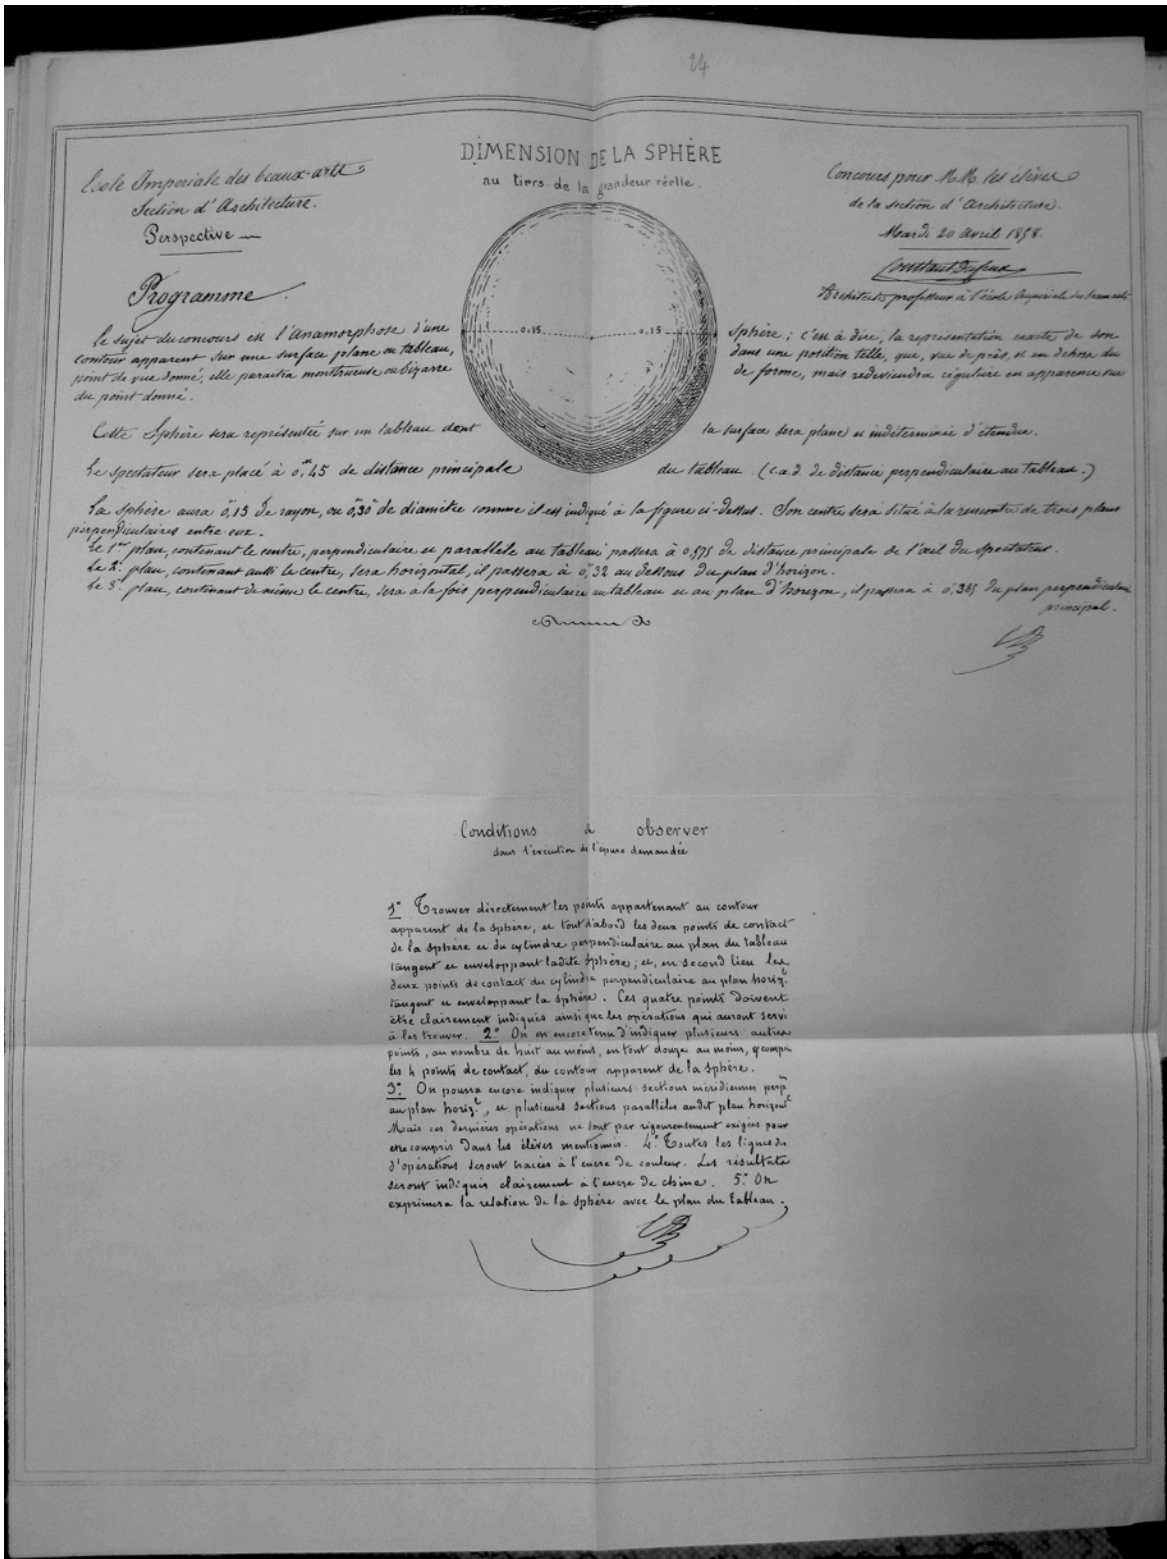 24
DIMENSION DE LA SPHÈRE
au tiers de la grandeur réelle.
Ecole Imperiale des beaux-arts
Section d'Architecture.
Perspective
Concours pour M.M. les élèves
de la section d'Architecture.
Mardi 20 avril 1858.
Constant Dufeux
Architecte professeur à l'école Impériale des beaux arts
Programme.
0,15 0,15
Le sujet du concours est l'Anamorphose d'une sphère; c'est à dire, la représentation exacte de son
contour apparent sur une surface plane ou tableau, dans une position telle, que, vue de près, et en dehors du
point de vue donné, elle paraitra monstrueuse ou bizarre de forme, mais redeviendra régulière en apparence vue
du point donné.
Cette Sphère sera représentée sur un tableau dont la surface sera plane et indéterminée d'étendue.
Le spectateur sera placé à 0,m45 de distance principale du tableau. (c.a.d. de distance perpendiculaire au tableau.)
La sphère aura 0,m15 de rayon, ou 0,m30 de diamètre comme il est indiqué à la figure ci-dessus. Son centre sera situé à la rencontre de trois plans
perpendiculaires entre eux.
Le 1er plan, contenant le centre, perpendiculaire et parallèle au tableau passera à 0,575 de distance principale de l'œil du spectateur.
Le 2e. plan, contenant aussi le centre, sera horizontal, il passera à 0,m32 au dessous du plan d'horizon.
Le 3e. plan, contenant de même le centre, sera à la fois perpendiculaire au tableau et au plan d'horizon, il passera à 0,m385 du plan perpendiculaire
principal.
Conditions à observer
dans l'exécution de l'épure demandée
1° Trouver directement les points appartenant au contour
apparent de la sphère, et tout d'abord les deux points de contact
de la sphère et du cylindre perpendiculaire au plan du tableau
tangent et enveloppant ladite sphère; et, en second lieu les
deux points de contact du cylindre perpendiculaire au plan horiz.l
tangent et enveloppant la sphère. Ces quatre points doivent
être clairement indiqués ainsi que les opérations qui auront servi
à les trouver. 2° On est encore tenu d'indiquer plusieurs autres
points, au nombre de huit au moins, en tout douze au moins, y compris
les 4 points de contact, du contour apparent de la sphère.
3°. On pourra encore indiquer plusieurs sections méridiennes perp.
au plan horiz.l, et plusieurs sections parallèles audit plan horizont.l
Mais ces dernières opérations ne sont pas rigoureusement exigées pour
etre compris dans les élèves mentionnés. 4°. Toutes les lignes
d'opérations seront tracées à l'encre de couleur. Les résultats
seront indiqués clairement à l'encre de chine. 5°. On
exprimera la relation de la sphère avec le plan du tableau.